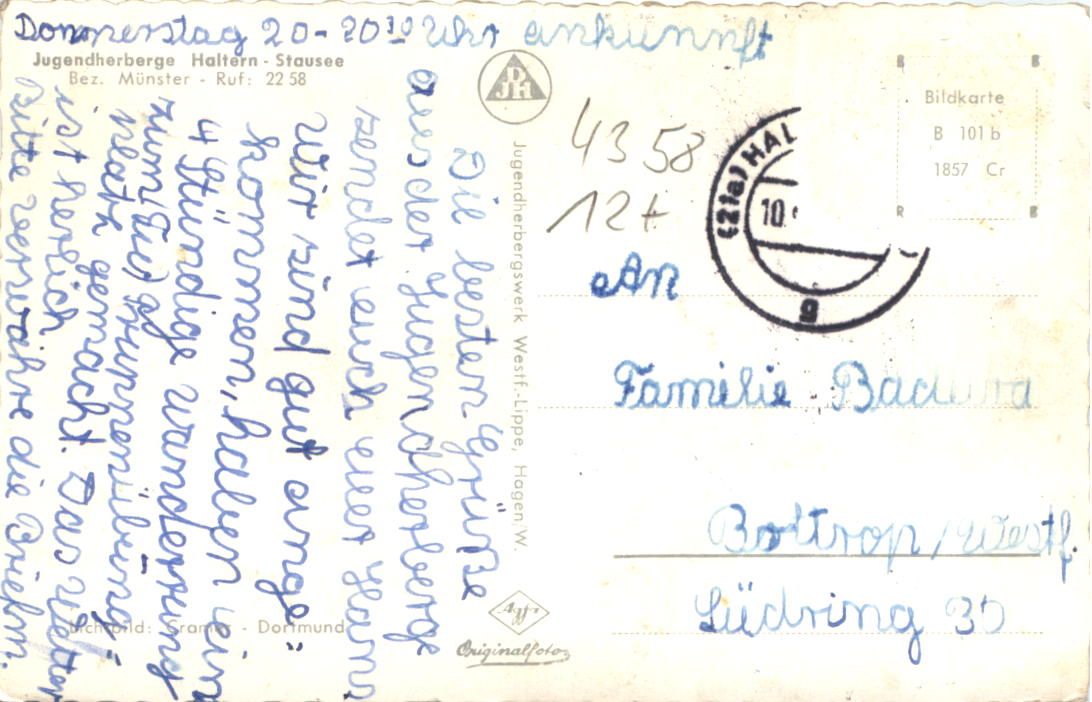 Donnerstag 20-20³⁰ Uhr ankunnft
Jugendherberge Haltern - Stausee
Bez. Münster - Ruf: 22 58
Die besten Grüße
aus der Jugendherberge
sendet euch euer
Wir sind gut ange=
kommen, haben ein
4 Stündige wanderrung
zum (See) Truppenübungs=
gemacht. Das Wetter
ist herrlich
Bitte verwahre die Briefm.
Lichtbild: Cramer - Dortmund
DJH
Jugendherbergswerk Westf.-Lippe, Hagen/W.
Agfa
Originalfoto
4358
12+
(21a) HAL
10.
g
Bildkarte
B 101 b
1857 Cr
An
Familie Badura
Bottrop/Westf.
Südring 30